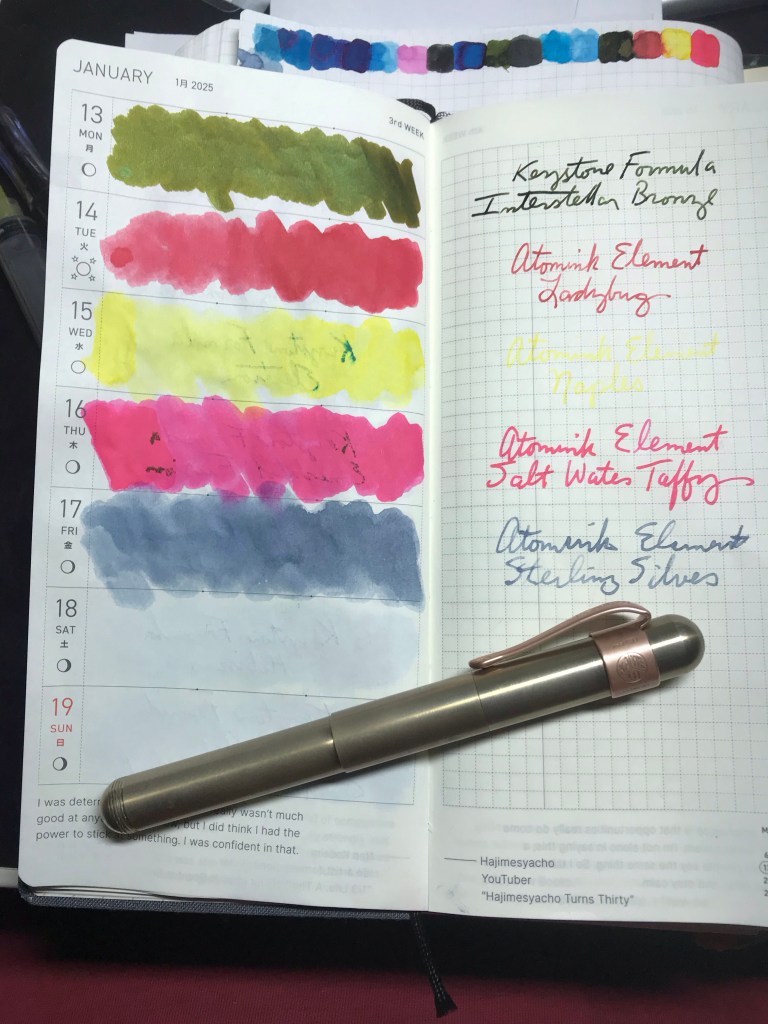 JANUARY 1月 2025
3rd WEEK
13
MON
月
14
TUE
火
15
WED
水
16
THU
木
17
FRI
金
18
SAT
土
19
SUN
日
I was deterr wasn't much
good at any but I did think I had the
power to stick something. I was confident in that.
Keystone Formula
Interstellar Bronze
Atomink Element
Ladybug
Atomink Element
Naples
Atomink Element
Salt Water Taffy
Atomink Element
Sterling Silver
Hajimesyacho
YouTuber
"Hajimesyacho Turns Thirty"